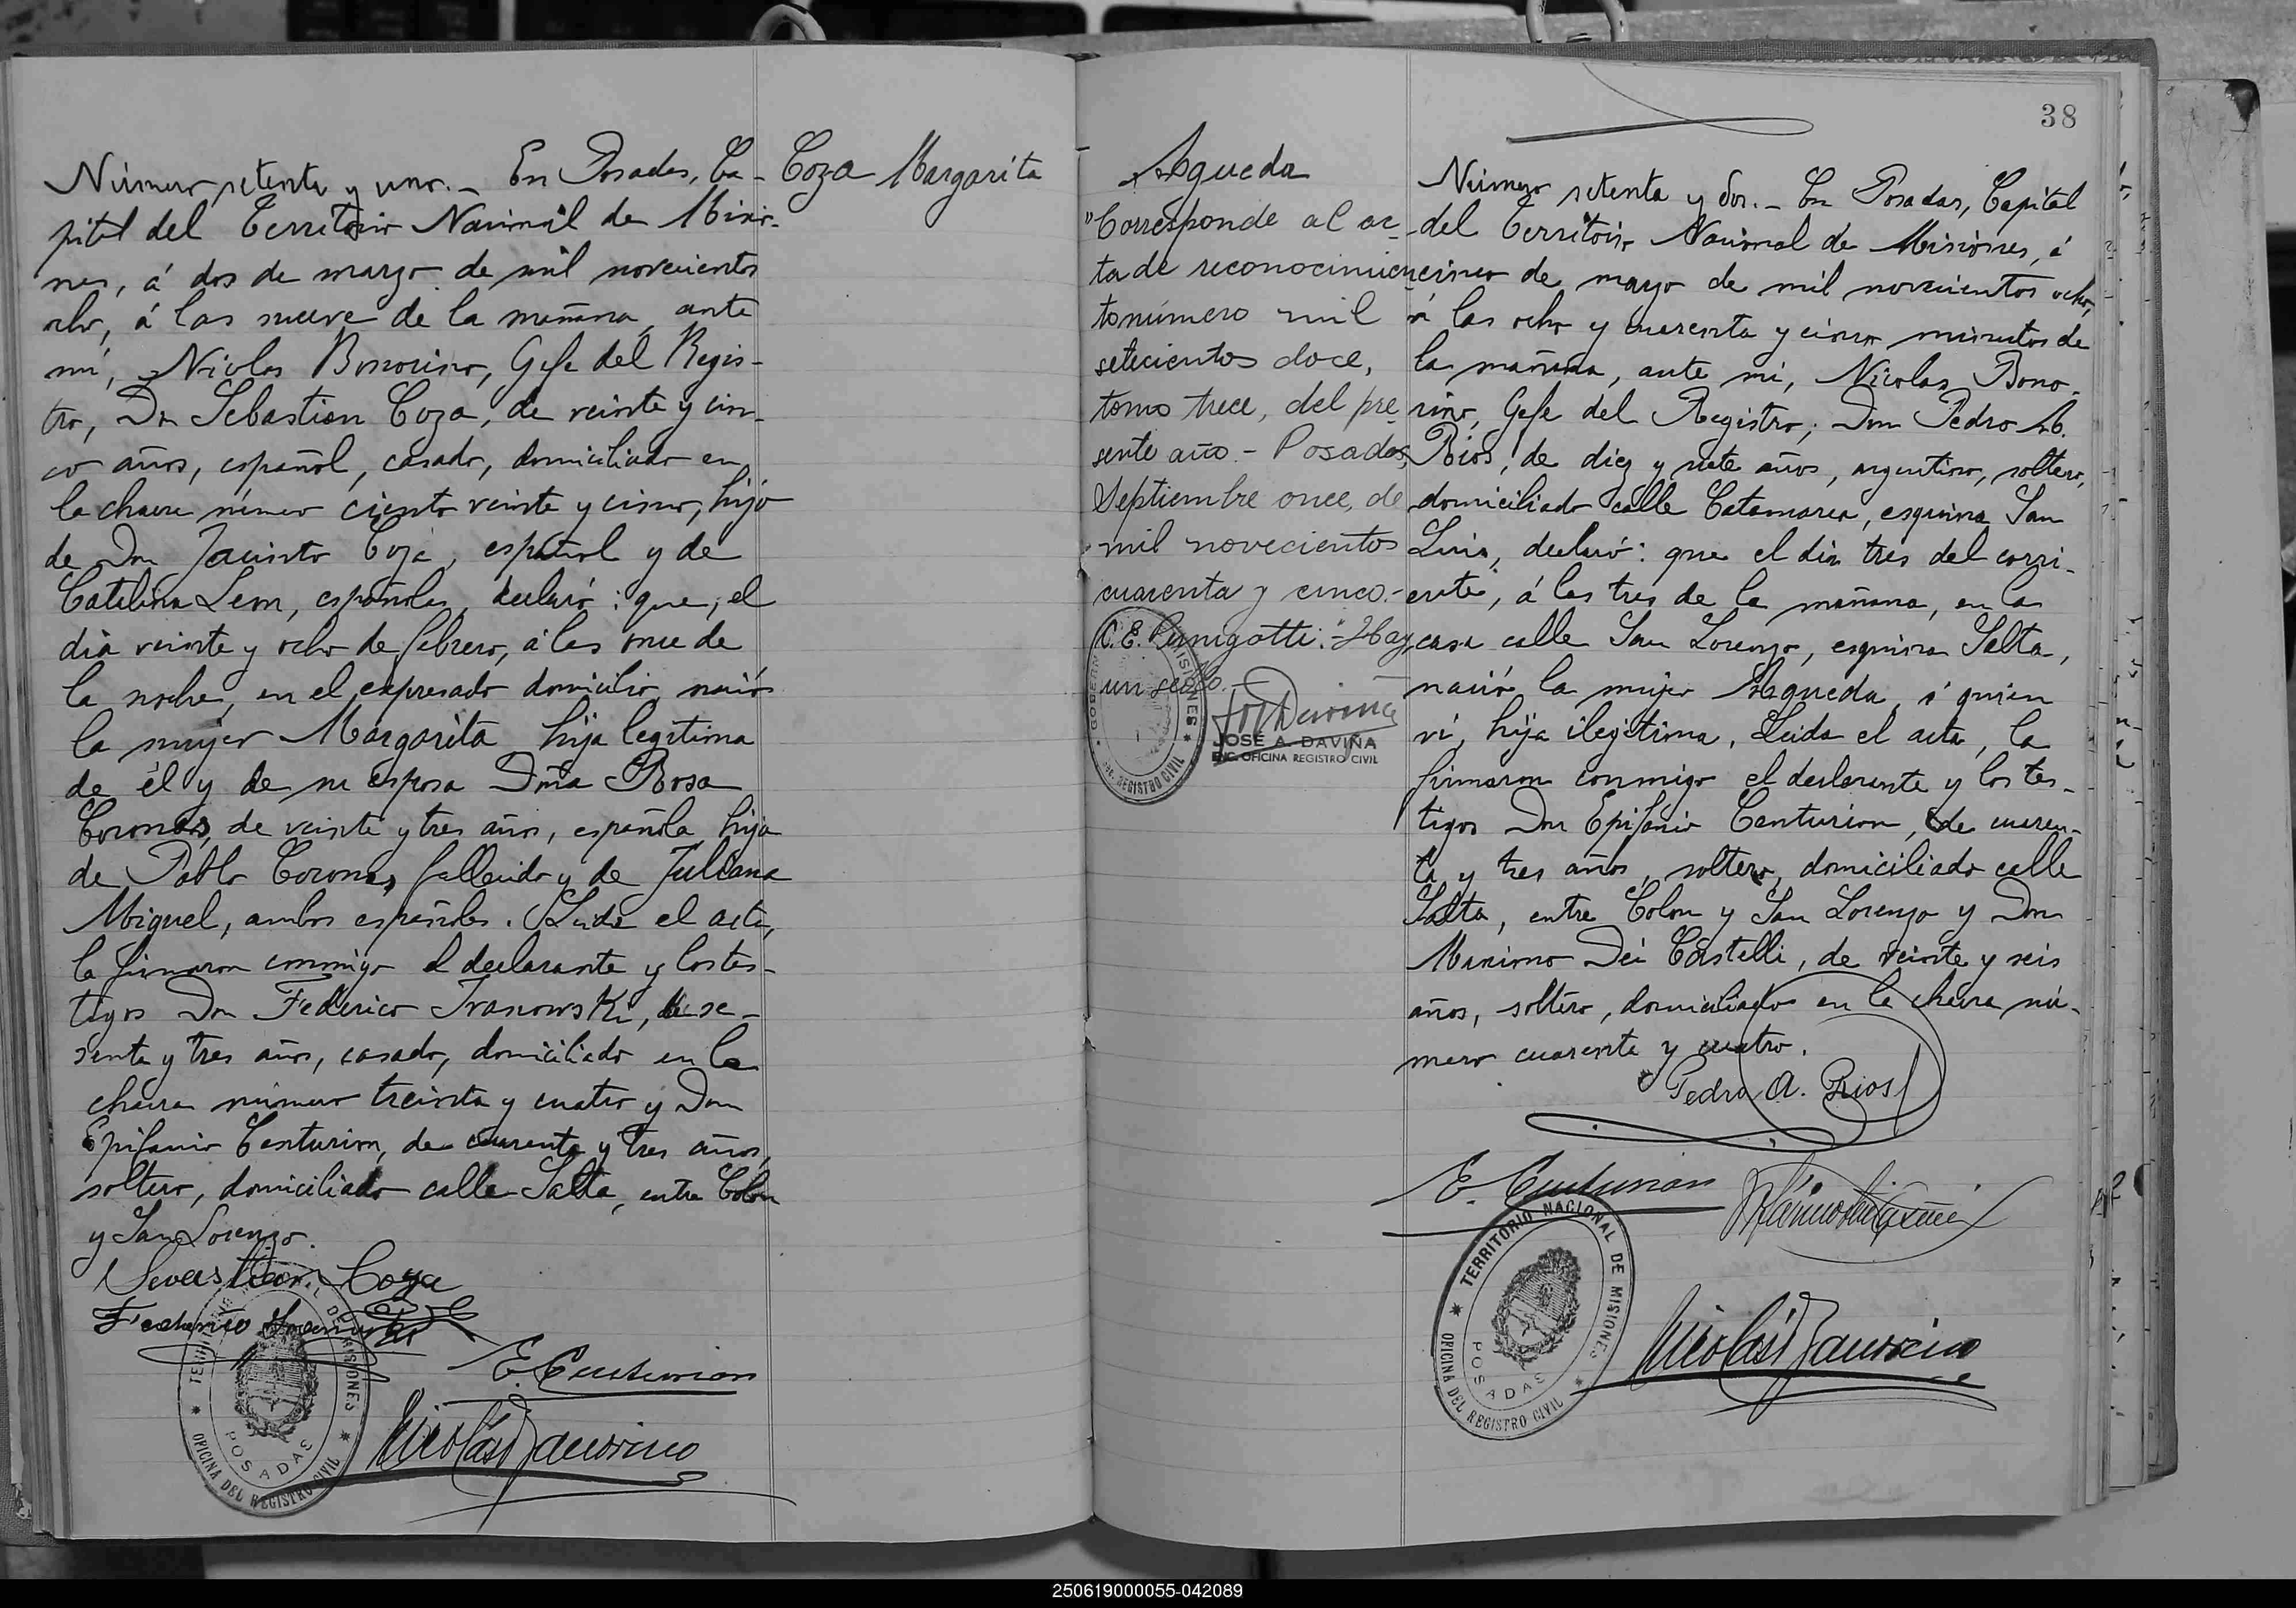 Número setenta y uno.- En Posadas, Ca-
pital del Territorio Nacional de Misio-
nes, á dos de marzo de mil novecientos
ocho, á las nueve de la mañana, ante
mí, Nicolas Bonorino, Gefe del Regis-
tro, Dn Sebastian Coza, de veinte y cin-
co años, español, casado, domiciliado en
la chacra número ciento veinte y cinco, hijo
de Don Jacinto Coza, español y de
Catalina Leon, española, declaró: que, el
dia veinte y ocho de febrero, á las once de
la noche, en el expresado domicilio, nació
la mujer Margarita, hija legítima
de él y de su esposa Doña Rosa
Coronas, de veinte y tres años, española, hija
de Pablo Coronas, fallecido y de Juliana
Miguel, ambos españoles. Leida el acta,
la firmaron conmigo el declarante y los tes-
tigos Don Federico Ivanowski, de se-
senta y tres años, casado, domiciliado en la
chacra número treinta y cuatro y Don
Epifanio Centurion, de cuarenta y tres años,
soltero, domiciliado calle Salta, entre Colon
y San Lorenzo.
Sevastian Coza
Federico Ivanowski
E. Centurion
Nicolás Bonorino
TERRITORIO NACIONAL DE MISIONES
POSADAS
OFICINA DEL REGISTRO CIVIL
Coza Margarita
Agueda
"Corresponde al ac-
ta de reconocimien-
to número mil
setecientos doce,
tomo trece, del pre-
sente año.- Posadas,
Septiembre once, de
mil novecientos
cuarenta y cinco.-
C.E. Cunigatti."- Hay
un sello.-
JOSÉ A. DAVIÑA
ENC. OFICINA REGISTRO CIVIL
38
Número setenta y dos.- En Posadas, Capital
del Territorio Nacional de Misiones, á
cinco de marzo de mil novecientos ocho,
á las ocho y cuarenta y cinco minutos de
la mañana, ante mi, Nicolas Bono-
rino, Gefe del Registro; Don Pedro A.
Rios, de diez y siete años, argentino, soltero,
domiciliado calle Catamarca, esquina San
Luis, declaró: que el dia tres del corri-
ente, á las tres de la mañana, en la
casa calle San Lorenzo, esquina Salta,
nació la mujer Agueda, á quien
ví, hija ilegítima. Leida el acta, la
firmaron conmigo el declarante y los tes-
tigos Don Epifanio Centurion, de cuaren-
ta y tres años, soltero, domiciliado calle
Salta, entre Colon y San Lorenzo y Don
Maximo Dei Castelli, de veinte y seis
años, soltero, domiciliado en la chacra nú-
mero cuarenta y cuatro.
Pedro A. Rios
E. Centurion
Nicolás Bonorino
TERRITORIO NACIONAL DE MISIONES
POSADAS
OFICINA DEL REGISTRO CIVIL
250619000055-042089